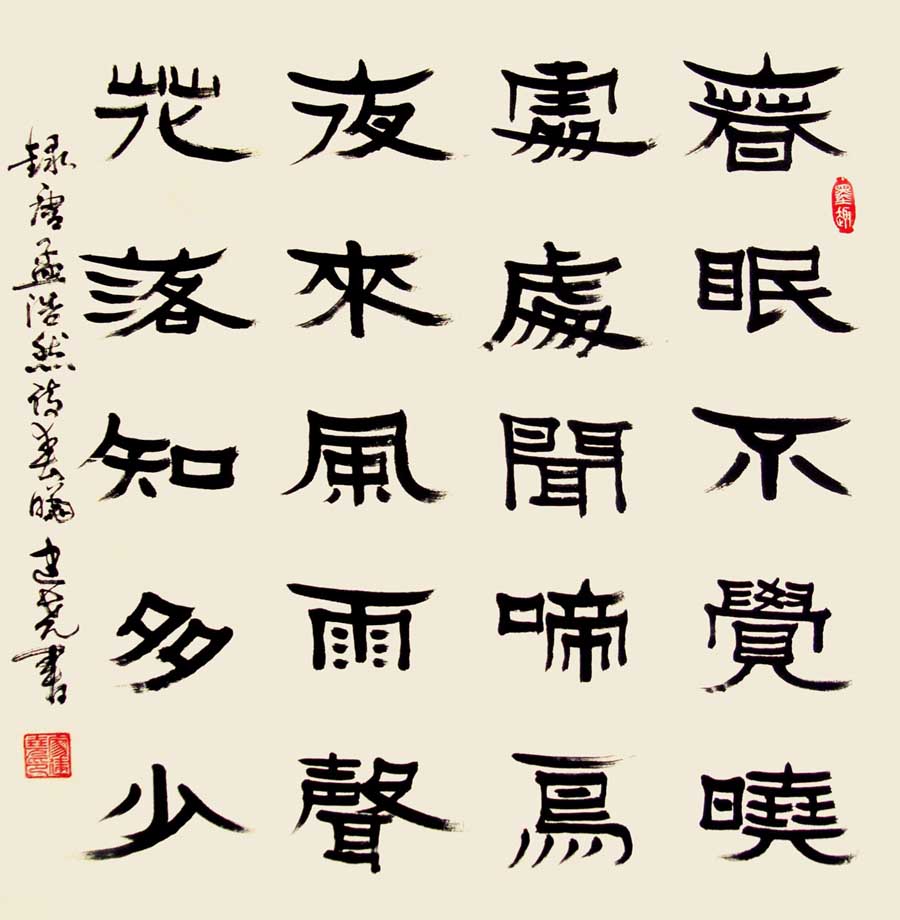 春眠不覺曉
墨趣
處處聞啼鳥
夜來風雨聲
花落知多少
錄唐孟浩然詩春曉 建堯書